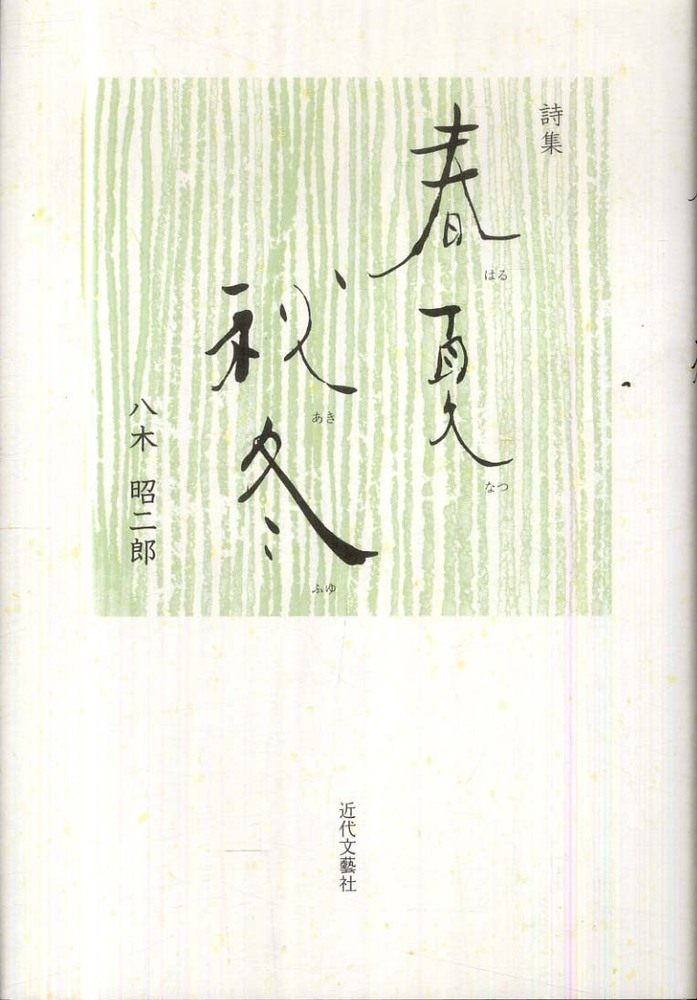 詩集
春夏
はる
なつ
秋冬
あき
ふゆ
八木 昭二郎
近代文藝社